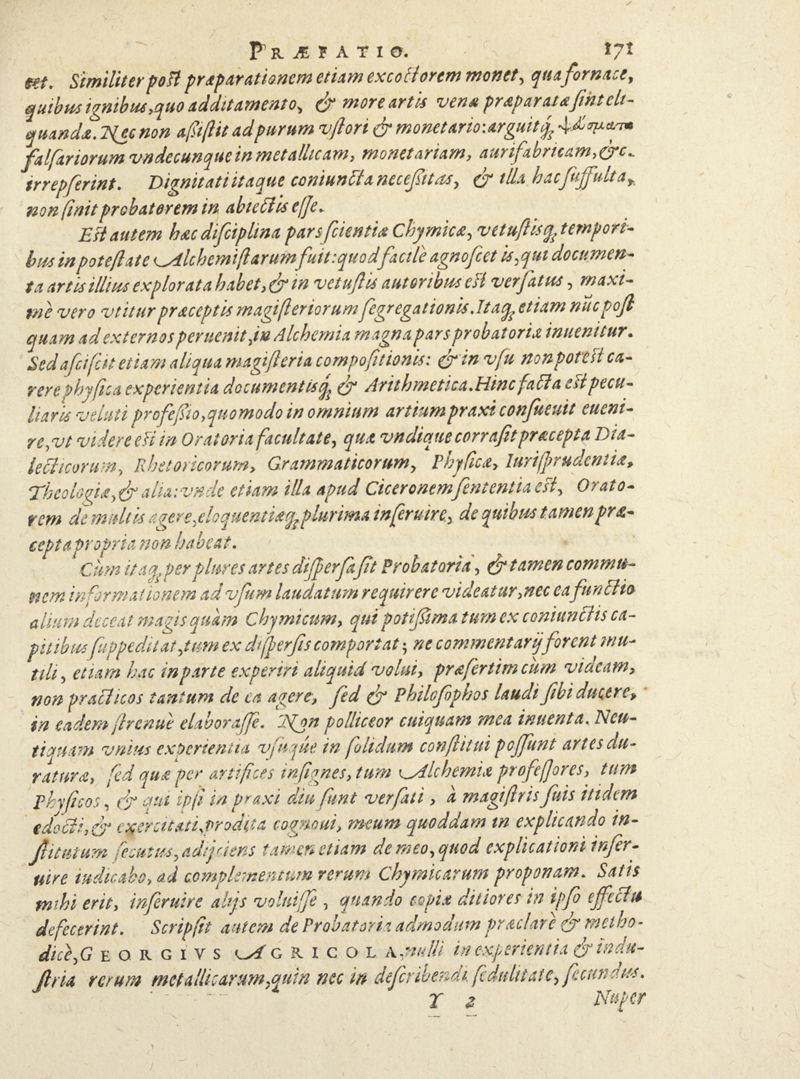 PRÆFATIO. 171
et. Similiter post præparationem etiam excoctorem monet, qua fornace,
quibus ignibus, quo additamento, & more artis venæ præparatæ sint eli-
quandæ. Nec non assistit ad purum vstori & monetario: arguitq́;
falsariorum vndecunque in metallicam, monetariam, aurifabricam, &c.
irrepserint. Dignitati itaque coniuncta necessitas, & illa hac suffulta,
non sinit probatorem in abiectis esse.
Est autem hæc disciplina pars scientiæ Chymicæ, vetustisq́; tempori-
bus in potestate Alchemistarum fuit: quod facilè agnoscet is, qui documen-
ta artis illius explorata habet, & in vetustis autoribus est versatus, maxi-
mè vero vtitur præceptis magisteriorum segregationis. Itaq; etiam nūc post
quam ad externos peruenit, in Alchemia magna pars probatoriæ inuenitur.
Sed asciscit etiam aliqua magisteria compositionis: & in vsu non potest ca-
rere physica experientia documentisq́; & Arithmetica. Hinc facta est pecu-
liaris veluti professio, quomodo in omnium artium praxi consueuit eueni-
re, vt videre est in Oratoria facultate, quæ vndique corrasit præcepta Dia-
lecticorum, Rhetoricorum, Grammaticorum, Physicæ, Iurisprudentiæ,
Theologiæ, & alia: vnde etiam illa apud Ciceronem sententia est, Orato-
rem de multis agere, eloquentiæq́; plurima inseruire, de quibus tamen præ-
cepta propria non habeat.
Cùm itaq; per plures artes disspersa sit Probatoria, & tamen commu-
nem informationem ad vsum laudatum requirere videatur, nec ea functio
alium deceat magis quàm Chymicum, qui potissima tum ex coniunctis ca-
pitibus suppeditat, tum ex disspersis comportat; ne commentarij forent mu-
tili, etiam hac in parte experiri aliquid volui, præsertim cùm videam,
non practicos tantum de ea agere, sed & Philosophos laudi sibi ducere,
in eadem strenuè elaborasse. Non polliceor cuiquam mea inuenta. Neu-
tiquam vnius experientia vsuqúe in solidum constitui possunt artes du-
raturæ, sed quæ per artifices insignes, tum Alchemiæ professores, tum
Physicos, & qui ipsi in praxi diu sunt versati, à magistris suis itidem
edocti, & exercitati, prodita cognoui, meum quoddam in explicando in-
stitutum secutus, adijciens tamen etiam de meo, quod explicationi inser-
uire iudicabo, ad complementum rerum Chymicarum proponam. Satis
mihi erit, inseruire alijs voluisse, quando copiæ ditiores in ipso effectu
defecerint. Scripsit autem de Probatoria admodum præclarè & metho-
dicè, GEORGIVS AGRICOLA, nulli in experientia & indu-
stria rerum metallicarum, quin nec in describendi sedulitate, secundus.
Y 2 Nuper